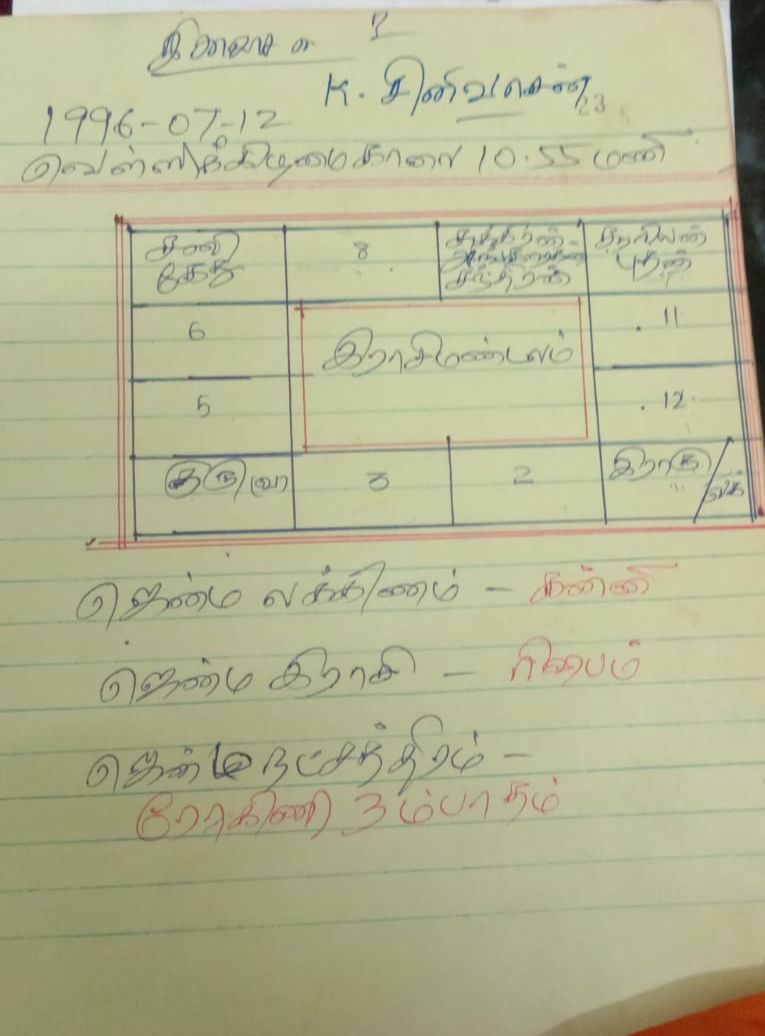 K. சினிவாசன்
23
1996-07-12
வெள்ளிக்கிழமை காலை 10.55 மணி
சனி 8 சுக்கிரன் சூரியன்
கேது செவ்வாய் புதன்
சந்திரன்
6 11
இராசிமண்டலம்
5 12
குரு (வ) 3 2 இராகு / லக்
ஜென்ம லக்கினம் - கன்னி
ஜென்ம இராசி - ரிஷபம்
ஜென்ம நட்சத்திரம் -
ரோகிணி 3ம்பாதம்